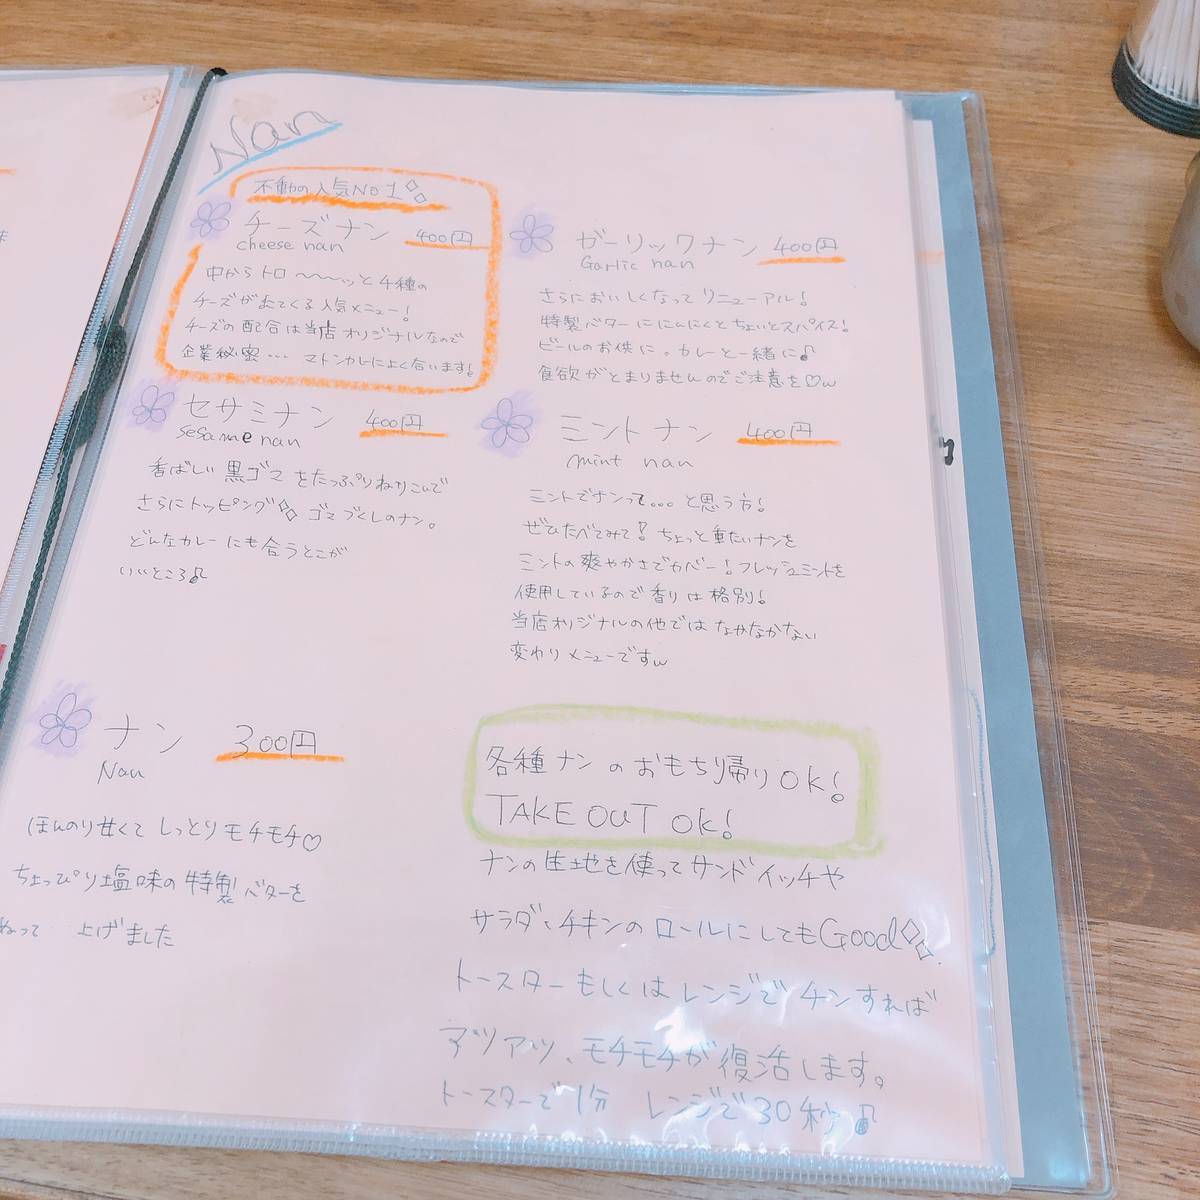 Nan
不動の人気NO1
チーズナン 400円
cheese nan
中からトロ〜〜〜ッと4種の
チーズが出てくる人気メニュー!
チーズの配合は当店オリジナルなので
企業秘密… マトンカレーによく合います!
ガーリックナン 400円
Garlic nan
さらにおいしくなってリニューアル!
特製バターににんにくとちょいとスパイス!
ビールのお供に。カレーと一緒に♪
食欲がとまりませんのでご注意を♡w
セサミナン 400円
sesame nan
香ばしい黒ゴマをたっぷりねりこんで
さらにトッピング ゴマづくしのナン。
どんなカレーにも合うとこが
いいところ♪
ミントナン 400円
mint nan
ミントでナンって... と思う方!
ぜひたべてみて! ちょっと重たいナンを
ミントの爽やかさでカバー! フレッシュミントを
使用しているので香りは格別!
当店オリジナルの他ではなかなかない
変わりメニューですw
ナン 300円
Nan
ほんのり甘くてしっとりモチモチ♡
ちょっぴり塩味の特製バターを
ねって 上げました
各種ナンのおもち帰りOK!
TAKE OUT OK!
ナンの生地を使ってサンドイッチや
サラダ、チキンのロールにしてもGood
トースターもしくはレンジでチンすれば
アツアツ、モチモチが復活します。
トースターで1分 レンジで30秒♪